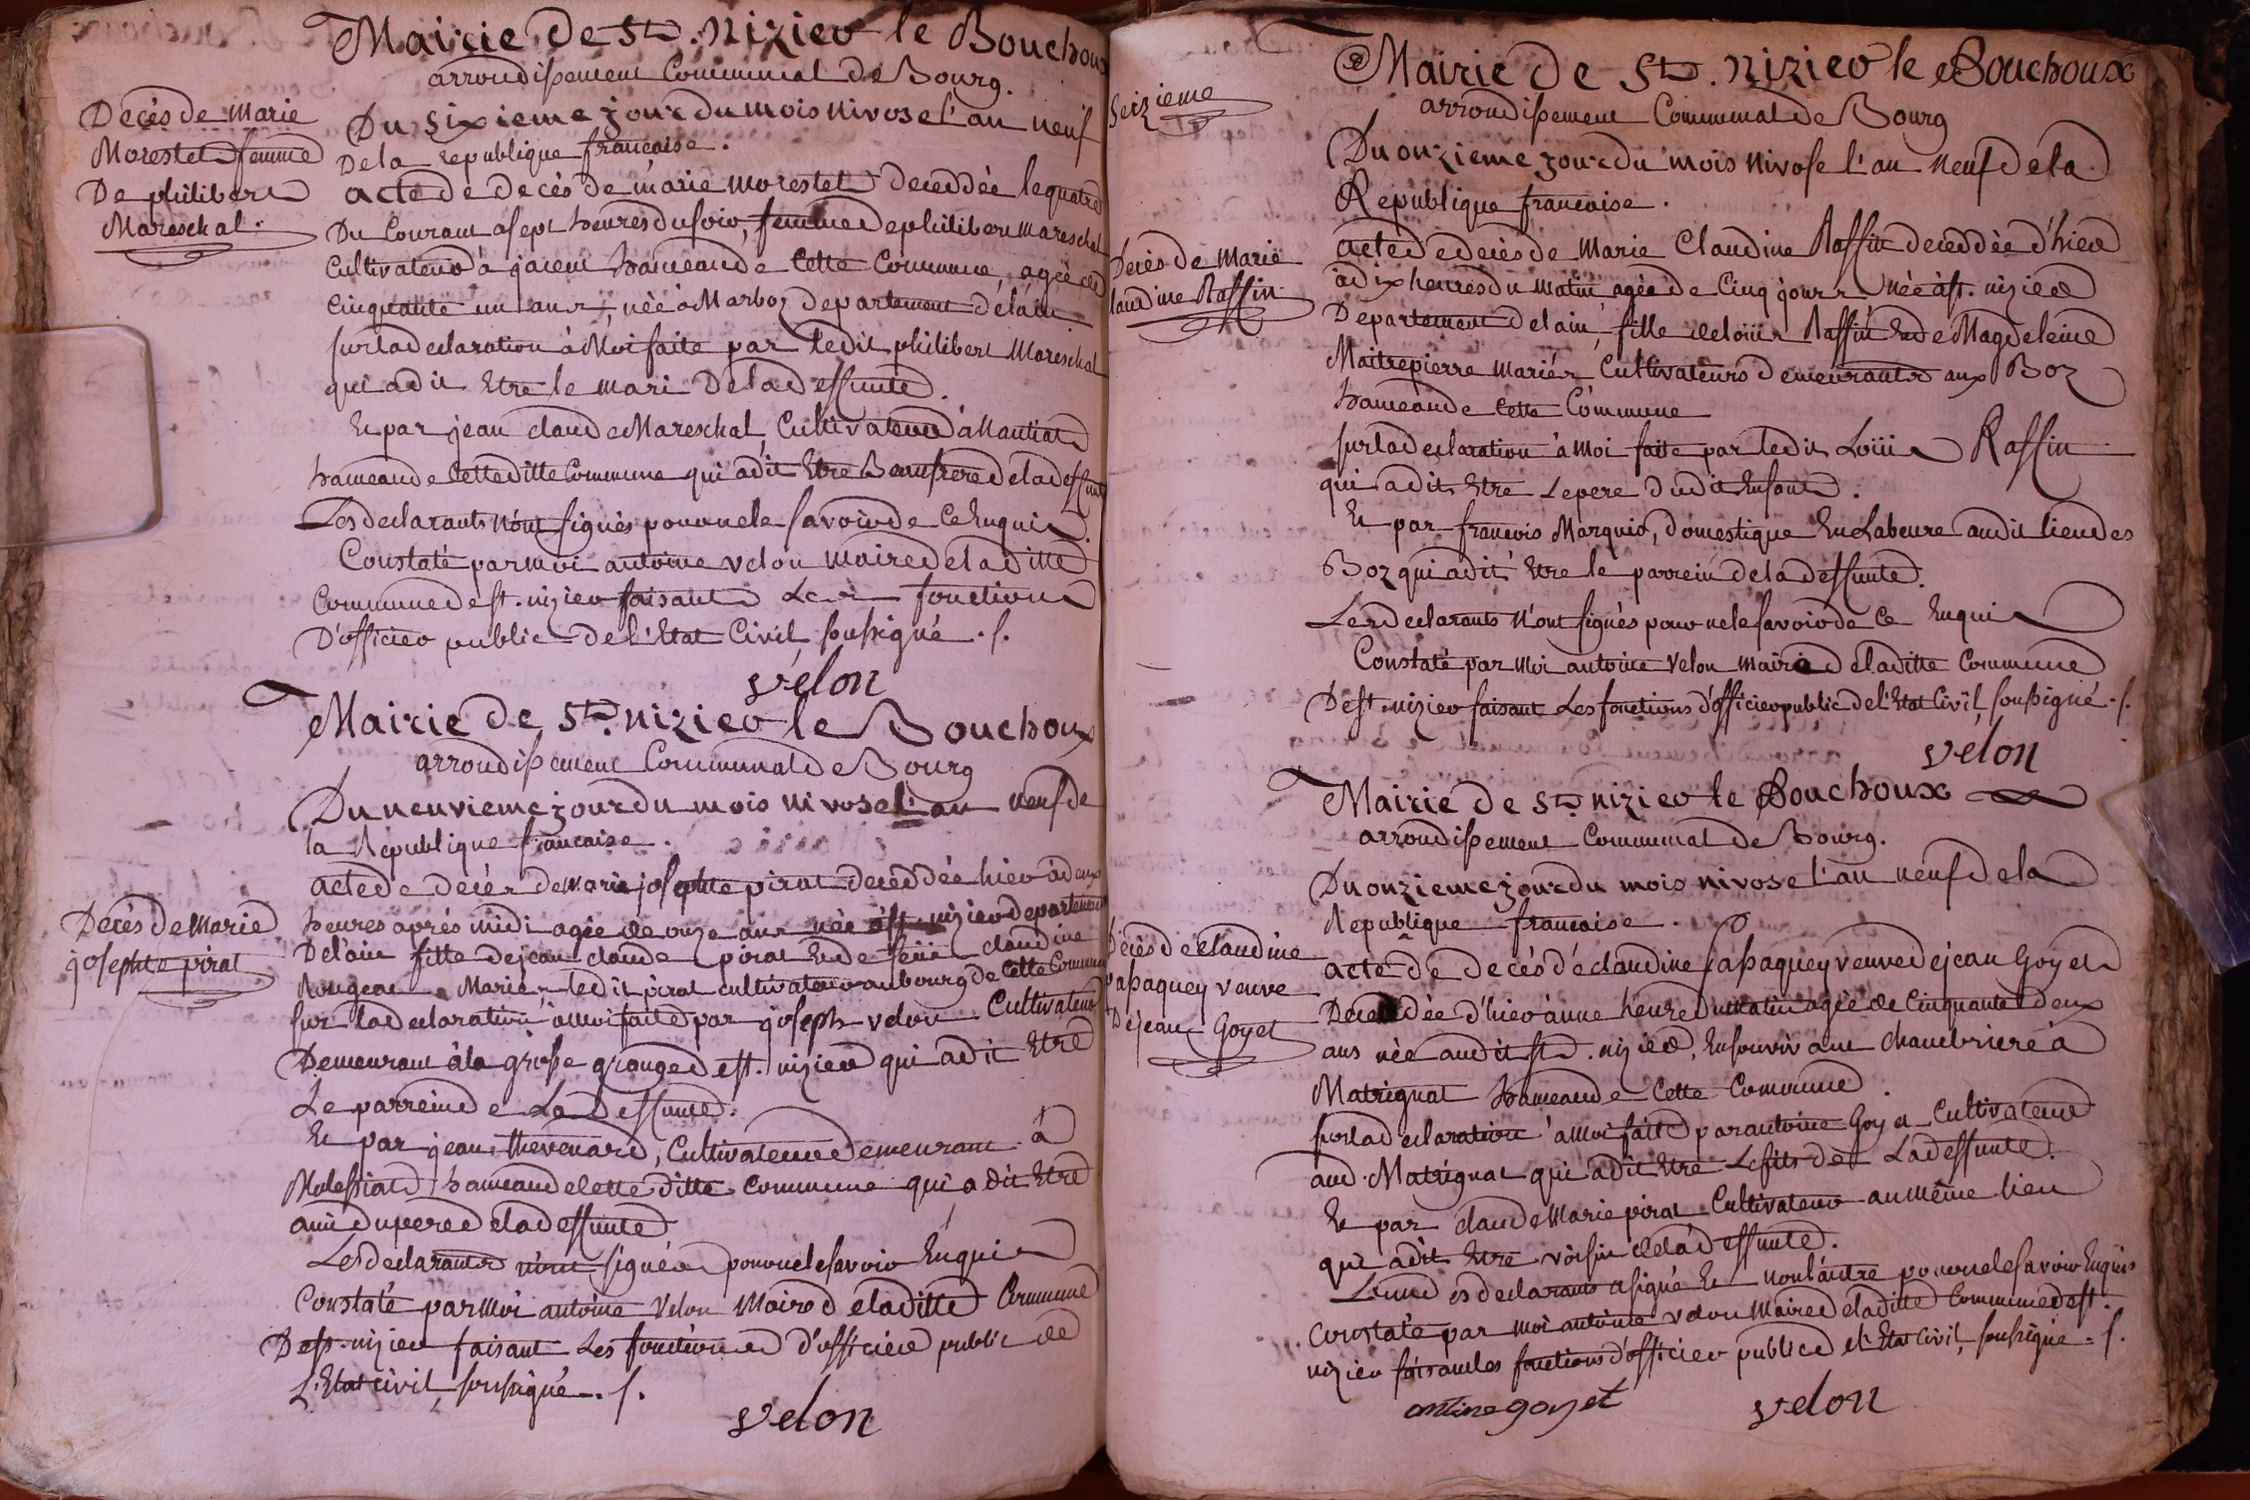 Mairie de St. nizier le Bouchoux
arrondissement Communal de Bourg.
Décès de Marie
Morestel femme
De philibert
Mareschal.
Du Sixieme jour du mois nivose l'an neuf
De la republique francaise.
acte de decès de marie morestel deceddée le quatre
Du Courant a sept heures du soir, femme de philibert mareschal
Cultivateur à jacem hameau de Cette Commune, agée de
Cinquante un ans, née à Marboz departement de lain
sur la declaration à Moi faite par ledit philibert Mareschal
qui a dit Etre le mari De la deffunte.
Et par jean claude Mareschal Cultivateur à Nantiat
hameau de Cette ditte Commune qui a dit Etre Beaufrere de la deffunte
Les declarants n'ont signés pour ne le savoir de Ce Enquis.
Constaté par moi antoine velon maire de la ditte
Commune de st. nizier faisant Les fonctions
D'officier public de l'Etat Civil soussigné. s.
velon
Mairie de St. nizier le Bouchoux
arrondissement Communal de Bourg
Du neuvieme jour du mois nivose l'an neuf de
la République francaise.
Décès de Marie
josephte pirat
acte de decés de Marie josephte pirat deceddée hier à deux
heures aprés midi agée de onze ans née à st. nizier departement
De l'ain fille de jean claude pirat Et de feüe claudine
Rougeat Mariés, ledit pirat cultivateur au bourg de Cette Commune
sur la declaration à moi faite par joseph velon Cultivateur
Demeurant à la grosse grange de st. nizier qui a dit Etre
Le parrein de La Deffunte.
Et par jean thevenard, Cultivateur demeurant à
Molessiat hameau de Cette ditte Commune qui a dit Etre
ami du pere de la deffunte
Les declarants n'ont signés pour ne le savoir Enquis
Constaté par moi antoine velon Maire de la ditte Commune
De st. nizier faisant Les fonctions d'officier public de
L'Etat civil, soussigné. s.
velon
Seizieme
Mairie de St. nizier le Bouchoux
arrondissement Communal de Bourg
Du onzieme jour du mois nivose l'an neuf de la
Republique francaise.
Decès de Marie
laudine Raffin
acte de decès de Marie Claudine Raffin deceddée d'hier
à dix heures du matin agée de Cinq jours née à st. nizier
Departement de lain, fille de loüis Raffin Et de Magdeleine
Maitrepierre mariés Cultivateurs demeurants aux Boz
hameau de Cette Commune
sur la declaration à Moi faite par ledit Loüis Raffin
qui a dit Etre Le pere dudit Enfant.
Et par francois Marquis, domestique En Labeure audit lieu des
Boz qui a dit Etre le parrein de la deffunte.
Les declarants n'ont signés pour ne le savoir de Ce Enquis
Constaté par moi antoine velon maire de la ditte Commune
De st. nizier faisant Les fonctions d'officier public de l'Etat Civil, soussigné. s.
velon
Mairie de St. nizier le Bouchoux
arrondissement Communal de Bourg.
Du onzieme jour du mois nivose l'an neuf de la
Republique francaise.
Décès de claudine
paßaquey veuve
De jean Goyet
acte de decés de claudine paßaquey veuve de jean Goyet
Deceddée d'hier à une heure du matin agée de Cinquante deux
ans née audit St. nizier, En son vivant chambriere à
Matrignat hameau de Cette Commune.
sur la declaration à moi faite par antoine Goyet Cultivateur
aud. Matrignat qui a dit Etre Le fils de La deffunte.
Et par claude Marie pirat Cultivateur au même lieu
qui a dit Etre voisin de la deffunte.
L'un des declarants a signé Et non l'autre pour ne le savoir Enquis
Constaté par moi antoine velon maire de la ditte Commune de st.
nizier faisant les fonctions d'officier public de l'Etat civil, soussigné. s.
antine goyet
velon